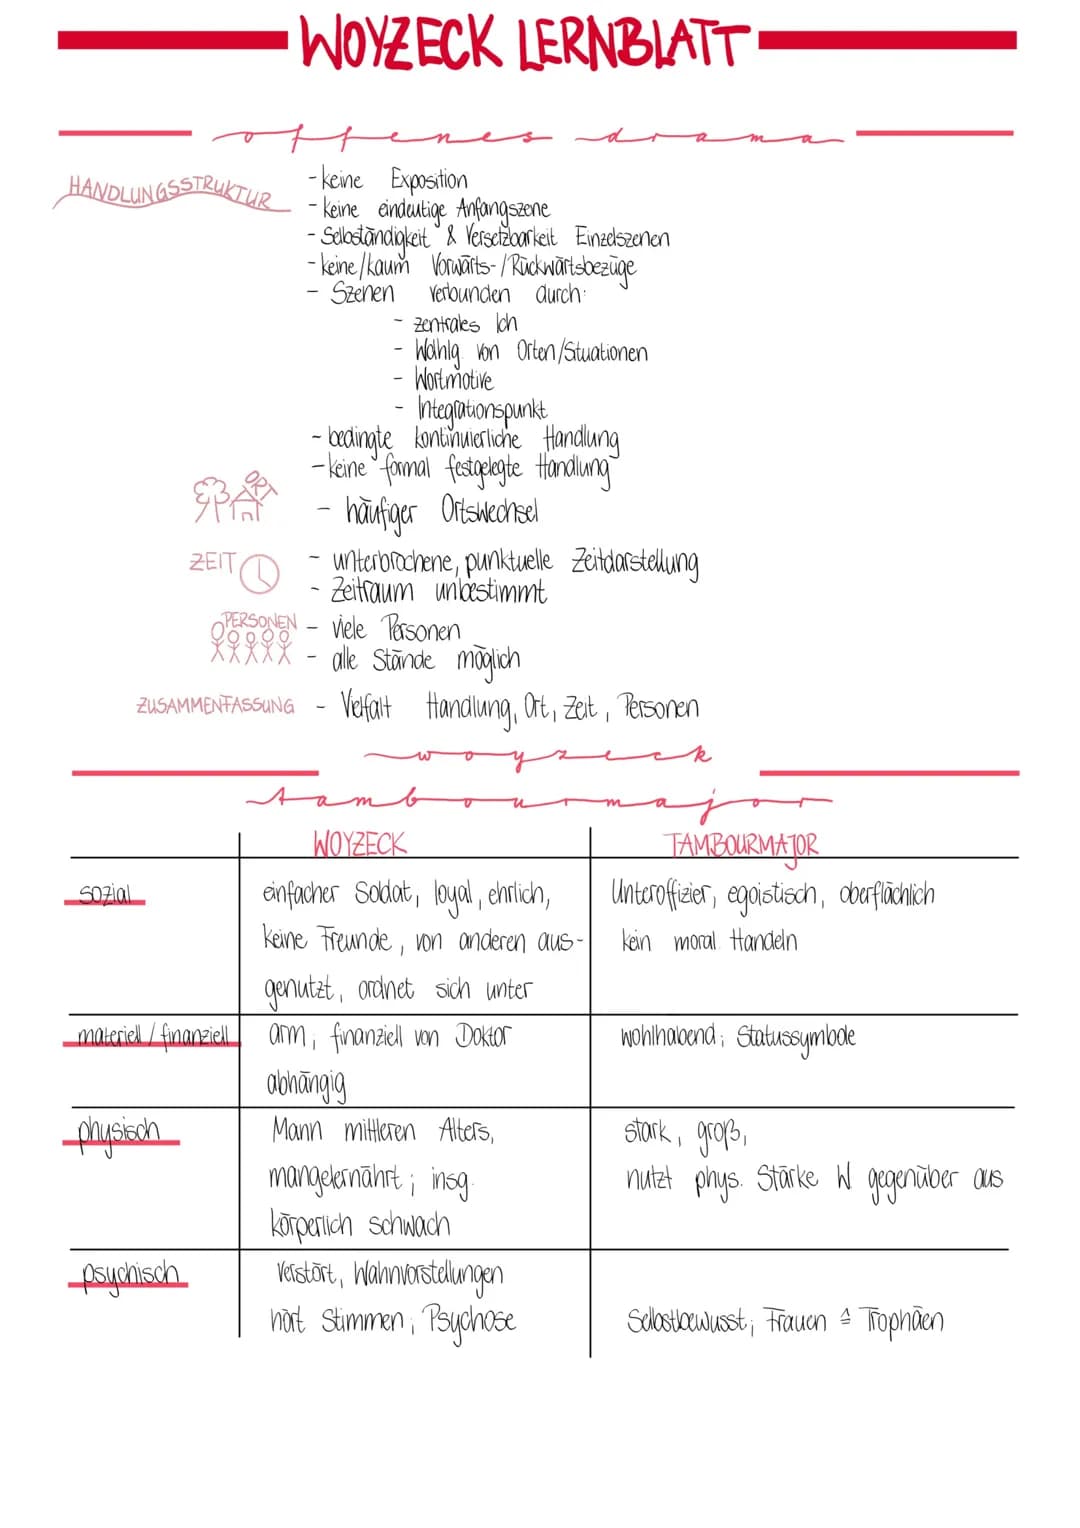 WOYZECK LERNBLATT
offenes drama
HANDLUNGSSTRUKTUR
- keine Exposition
- keine eindeutige Anfangszene
- Selbständigkeit & Versetzbarkeit Einzelszenen
- keine/kaum Vorwärts-/Rückwärtsbezüge
- Szenen verbunden durch:
- zentrales Ich
- Wahlg. von Orten/Situationen
- Wortmotive
- Integrationspunkt
- bedingte kontinuierliche Handlung
- keine formal festgelegte Handlung
ORT
- häufiger Ortswechsel
ZEIT
- unterbrochene, punktuelle Zeitdarstellung
- Zeitraum unbestimmt
PERSONEN
- viele Personen
- alle Stände möglich
ZUSAMMENFASSUNG - Vielfalt Handlung, Ort, Zeit, Personen
woyzeck
tambourmajor
WOYZECK TAMBOURMAJOR
sozial einfacher Soldat, loyal, ehrlich, Unteroffizier, egoistisch, oberflächlich
keine Freunde, von anderen aus- kein moral. Handeln
genutzt, ordnet sich unter
materiell / finanziell arm; finanziell von Doktor wohlhabend; Statussymbole
abhängig
physisch Mann mittleren Alters, stark, groß,
mangelernährt; insg. nutzt phys. Stärke W gegenüber aus
körperlich schwach
psychisch Verstört, Wahnvorstellungen
hört Stimmen; Psychose Selbstbewusst; Frauen ≙ Trophäen